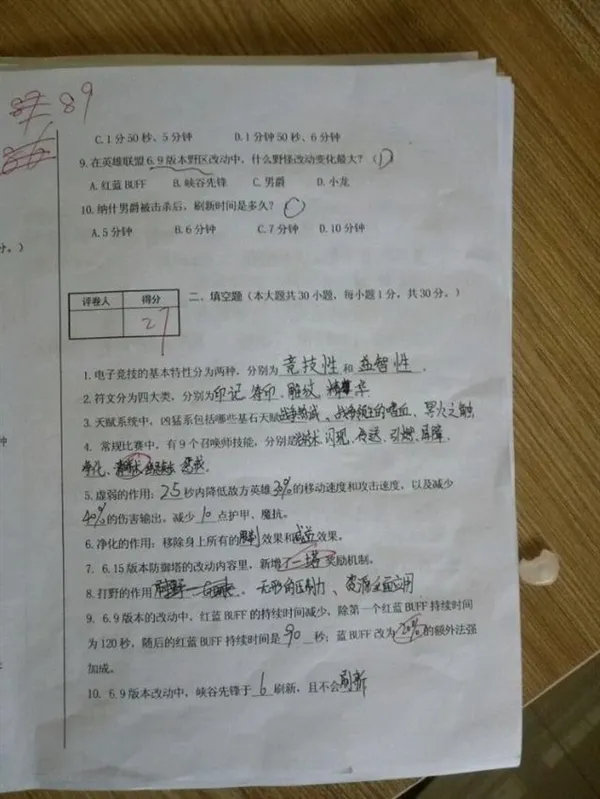 87 89
86
C. 1 分 50 秒、5 分钟 D. 1 分钟 50 秒、6 分钟
9. 在英雄联盟 6.9 版本野区改动中，什么野怪改动变化最大？（D）
A. 红蓝 BUFF B. 峡谷先锋 C. 男爵 D. 小龙
10. 纳什男爵被击杀后，刷新时间是多久？（C）
A. 5 分钟 B. 6 分钟 C. 7 分钟 D. 10 分钟
分。）
评卷人 得分
27
二、填空题（本大题共 30 小题，每小题 1 分，共 30 分。）
1. 电子竞技的基本特性分为两种，分别为 竞技性 和 益智性 .
2. 符文分为四大类，分别为印记、符印、雕纹、精华
3. 天赋系统中，凶猛系包括哪些基石天赋战争热诚、战争领主的嗜血、冥火之触
4. 常规比赛中，有 9 个召唤师技能，分别是治疗术、闪现、传送、引燃、屏障、
钟
净化、惩戒
5. 虚弱的作用：2.5 秒内降低敌方英雄30%的移动速度和攻击速度，以及减少
40%的伤害输出，减少 10 点护甲、魔抗。
6. 净化的作用：移除身上所有的限制效果和减益效果。
7. 6.15 版本防御塔的改动内容里，新增了一塔奖励机制。
8. 打野的作用 无形的压制力、资源全面应用
9. 6.9 版本的改动中，红蓝 BUFF 的持续时间减少，除第一个红蓝 BUFF 持续时间
为 120 秒，随后的红蓝 BUFF 持续时间是 90 秒；蓝 BUFF 改为 20% 的额外法强
加成。
10. 6.9 版本改动中，峡谷先锋于 6 刷新，且不会刷新